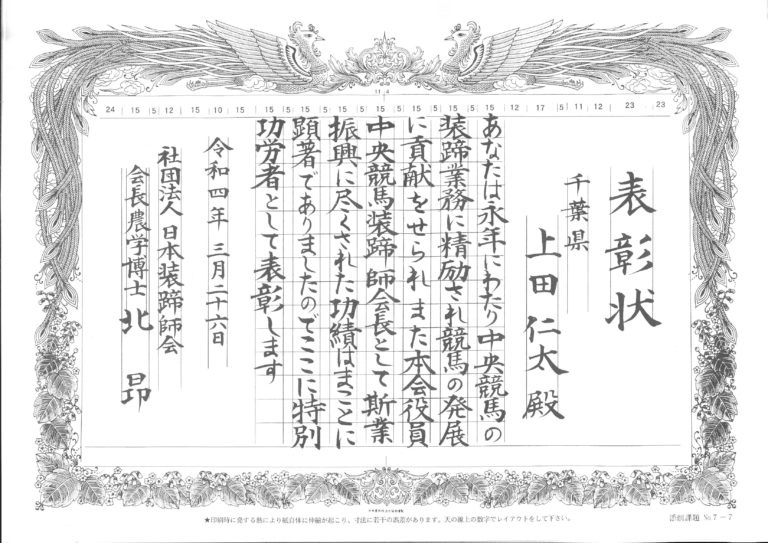 表彰状
千葉県
上田仁太殿
あなたは永年にわたり中央競馬の
装蹄業務に精励され競馬の発展
に貢献をせられまた本会役員
中央競馬装蹄師会長として斯業
振興に尽くされた功績はまことに
顕著でありましたのでここに特別
功労者として表彰します
令和四年三月二十六日
社団法人日本装蹄師会
会長農学博士北昂
11 4
24 15 5 12 15 10 15 15 5 15 5 15 5 15 5 15 5 15 5 15 12 17 5 11 12 23 23
★印刷時に発する熱により紙自体に伸縮が起こり、寸法に若干の誤差があります。天の線上の数字でレイアウトをして下さい。
添削課題 No.7－7